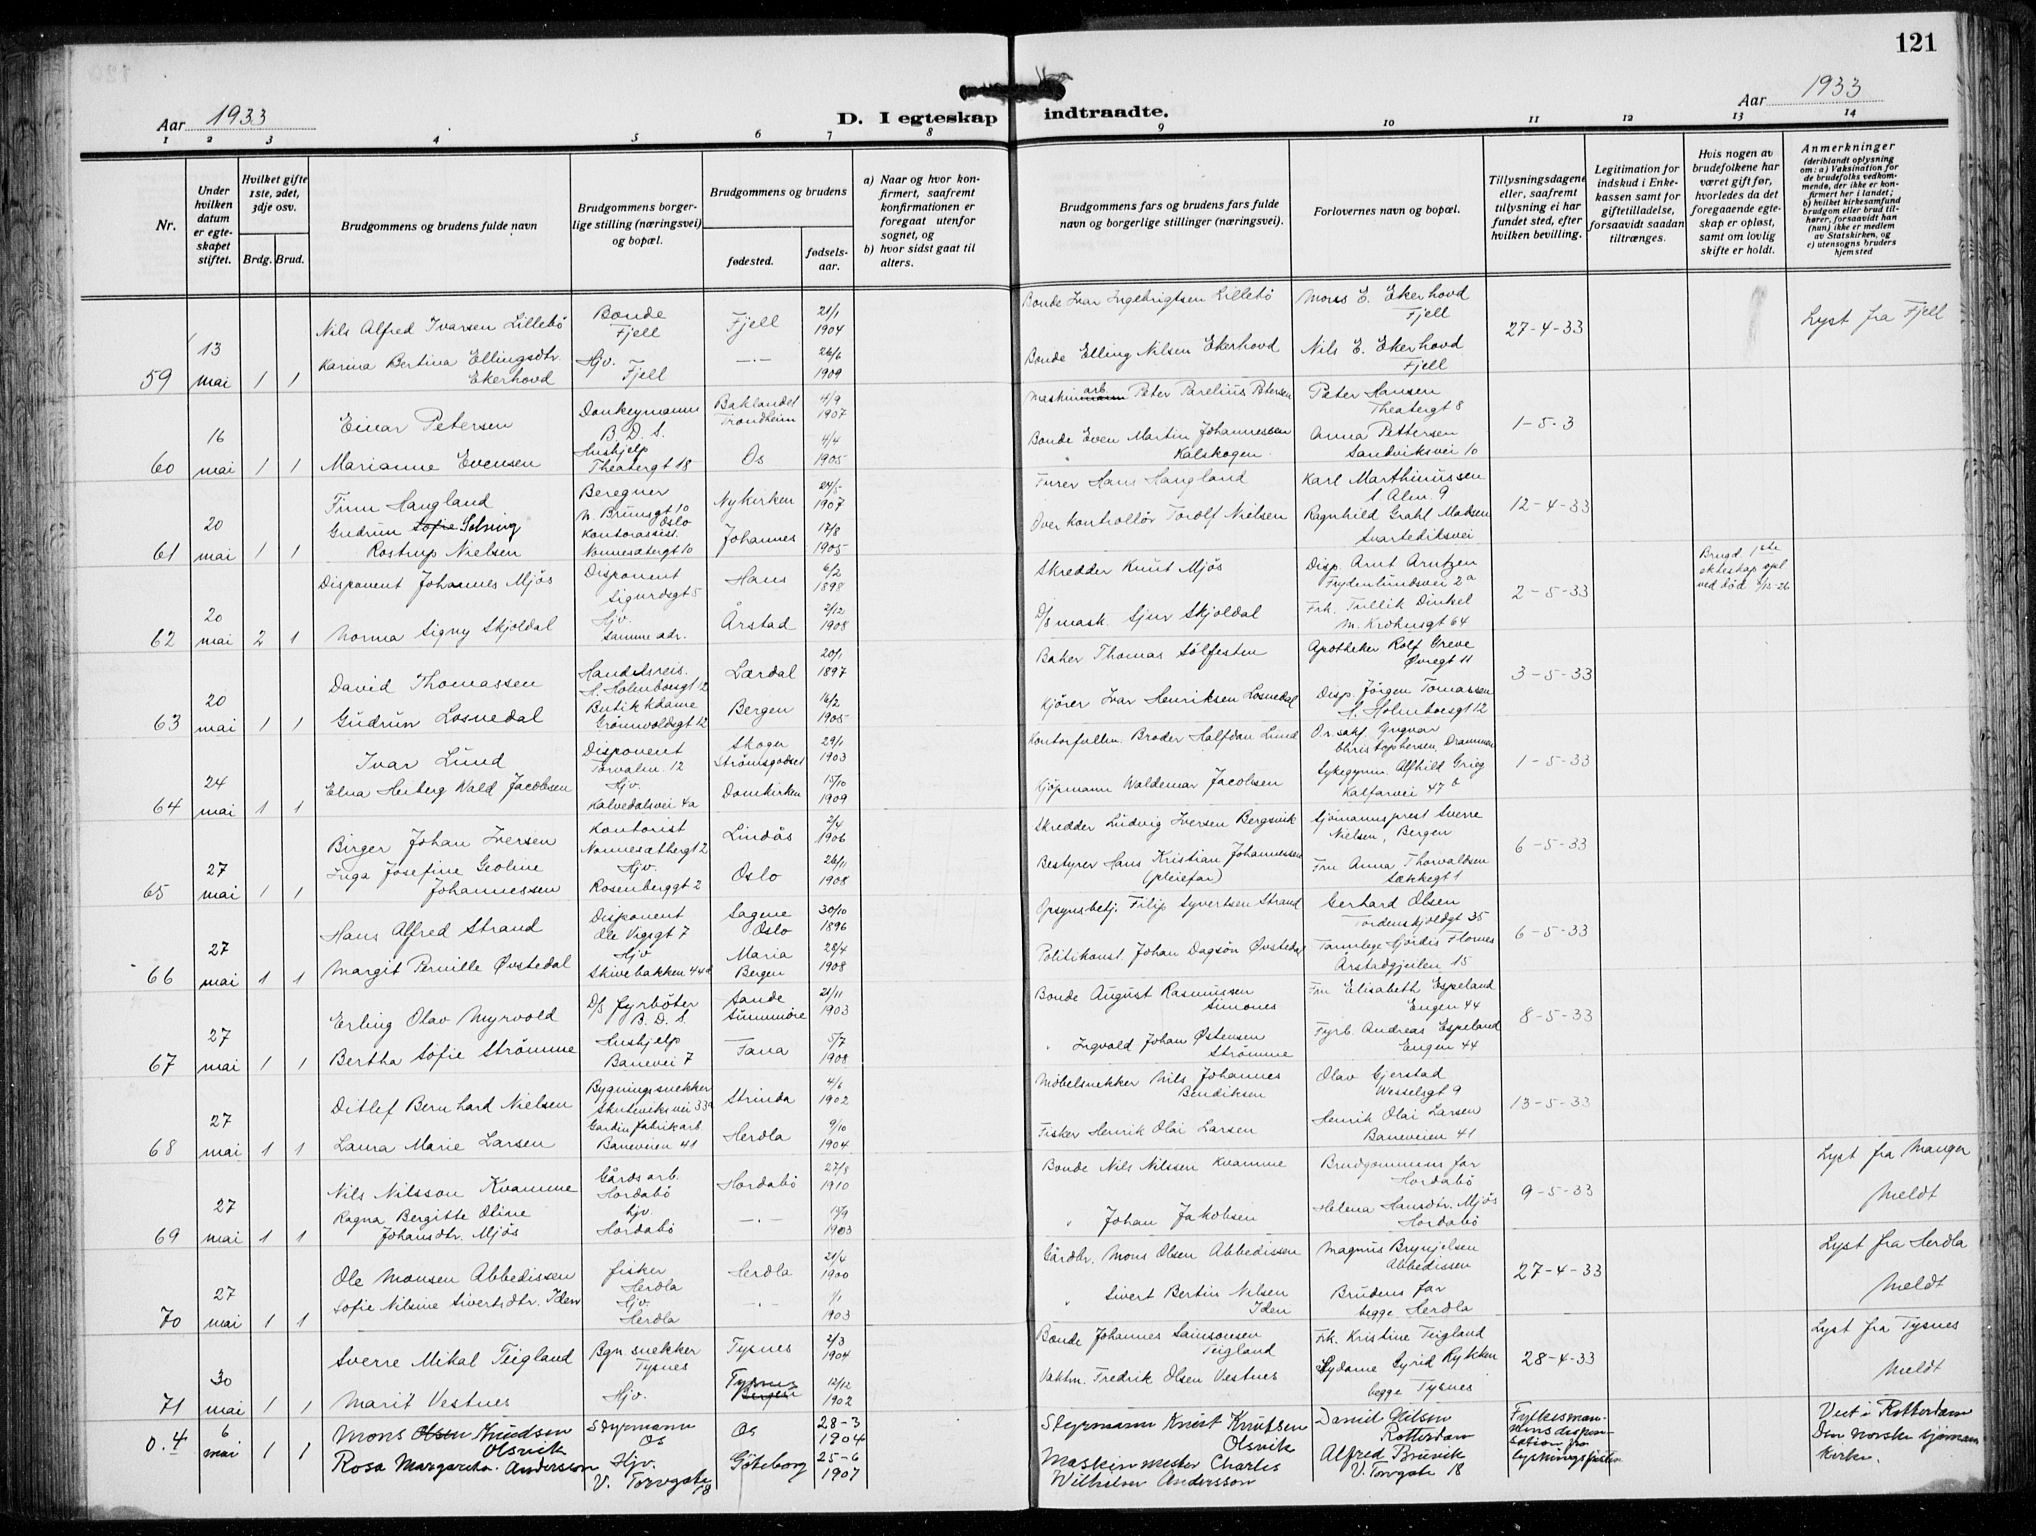 121
Aar 1933
D. I egteskap indtraadte.
Aar 1933
1 2 3 4 5 6 7 8 9 10 11 12 13 14
Nr.
Under hvilken datum er egteskapet stiftet.
Hvilket gifte 1ste, 2det, 3dje osv.
Brdg. Brud.
Brudgommens og brudens fulde navn
Brudgommens borgerlige stilling (næringsvei) og bopæl.
Brudgommens og brudens
fødested.
fødselsaar.
a) Naar og hvor konfirmert, saafremt konfirmationen er foregaat utenfor sognet, og
b) hvor sidst gaat til alters.
Brudgommens fars og brudens fars fulde navn og borgerlige stillinger (næringsvei).
Forlovernes navn og bopæl.
Tillysningsdagene eller, saafremt tillysning ei har fundet sted, efter hvilken bevilling.
Legitimation for indskud i Enkekassen samt for giftetilladelse, forsaavidt saadan tiltrænges.
Hvis nogen av brudefolkene har været gift før, hvorledes da det foregaaende egteskap er opløst, samt om lovlig skifte er holdt.
Anmerkninger (deriblandt oplysning om: a) Vaksination for de brudefolks vedkommende, der ikke er konfirmert her i landet; b) hvilket kirkesamfund brudgom eller brud tilhører, forsaavidt han (hun) ikke er medlem av Statskirken, og c) utensogns bruders hjemsted
59 13 mai 1 1 Nils Alfred Ivarsen Lillebø Bonde Fjell Fjell 21/1 1904 Bonde Ivar Ingebrigtsen Lillebø Mons E. Ekerhovd Fjell 27-4-33 Lyst fra Fjell
Karina Bertina Ellingsdtr. Ekerhovd Hjv. Fjell —"— 26/6 1909 Bonde Elling Nilsen Ekerhovd Nils E. Ekerhovd Fjell
60 16 mai 1 1 Einar Petersen Donkeymann B. D. S. Baklandet Trondheim 4/9 1907 Maskinarb. Peter Parelius Petersen Peter Hansen Theatergt 8 1-5-3
Marianne Evensen Hushjelp Theatergt 18 Os 4/4 1905 Bonde Even Martin Johannessen Kalskogen Anna Pettersen Sandviksvei 10
61 20 mai 1 1 Finn Haugland Beregner N. Brunsgt 10 Oslo Nykirken 1907 Furer Hans Haugland Karl Marthinussen S. Alm. 9 12-4-33
Gudrun Sofie Solveig Rostrup Nielsen Kontorassist. Nonnesætergt 10 Johannes 17/8 1905 Overkontrollør Torolf Nielsen Ragnhild Grahl Madsen Svartediksvei
62 20 mai 2 1 Disponent Johannes Mjøs Disponent Sigurdsgt 5 Haus 6/2 1898 Skredder Knut Mjøs Disp. Arnt Arntzen Frydenlundsvei 2a 2-5-33 Brugd. 1ste ekteskap opl ved død
Norma Signy Skjoldal Hjv. Samme adr. Årstad 2/12 1908 D/S mask. Sjur Skjoldal Frk. Tullik Dinkel M. Krohnsgt 64
63 20 mai 1 1 David Thomassen Handelsreis. H. Holmboesgt 12 Lærdal 20/1 1897 Baker Thomas Sølfesten Apotheker Rolf Greve Øvregt 11 3-5-33
Gudrun Losnedal Butikkdame Grønvoldsgt 12 Bergen 16/2 1905 Kjører Ivar Henriksen Losnedal Disp. Jørgen Tomassen H. Holmboesgt 12
64 24 mai 1 1 Ivar Lund Disponent Torvalm. 12 Skoger Strømsgodset 29/1 1903 Kontorfullm. Broder Halfdan Lund O.r.sakf. Yngvar Christophersen, Drammen 1-5-33
Elna Heiberg Wald Jacobsen Hjv. Kalvedalsvei 4a Domkirken 15/10 1909 Kjøpmann Waldemar Jacobsen Sykegymn. Alfhild Grieg Kalfarvei 47b
65 27 mai 1 1 Birger Johan Iversen Kontorist Nonnesætbergt 2 Lindås 2/4 1906 Skredder Ludvig Iversen Bergsvik Sjømannsprest Sverre Nielsen, Bergen 6-5-33
Inga Josefine Geoline Johannessen Hjv. Rosenberggt 2 Oslo 26/1 1908 Bestyrer Hans Kristian Johannessen (pleiefar) Fru Anna Thorvaldsen Sækkegt 1
66 27 mai 1 1 Hans Alfred Strand Disponent Ole Vigsgt 7 Sagene Oslo 30/10 1896 Opsynsbetj. Filip Syvertsen Strand Gerhard Olsen Tordenskjoldgt 35 6-5-33
Margit Pernille Øvstedal Hjv Skivebakken 44a Maria Bergen 28/4 1908 Politikonst. Johan Dagsøn Øvstedal Tannlege Hjørdis Flornes Årstadgjeilen 15
67 27 mai 1 1 Erling Olav Myrvold D/S fyrbøter B. D. S. Sande Sunnmøre 21/11 1903 Bonde August Rasmussen Simones Fru Elisabeth Espeland Engen 44 8-5-33
Bertha Sofie Strømme Hushjelp Banevei 7 Fana 5/7 1908 " Ingvald Johan Østensen Strømme Fyrb. Andreas Espeland Engen 44
68 27 mai 1 1 Ditlef Bernhard Nielsen Bygningssnekker Skuteviksvei 33a Strinda 4/6 1902 Møbelsnekker Nils Johannes Bendiksen Olav Gjerstad Wesselsgt 9 13-5-33
Laura Marie Larsen Gardinfabrikarb Baneveien 41 Herdla 9/10 1904 Fisker Henrik Olai Larsen Henrik Olai Larsen Baneveien 41
69 27 mai 1 1 Nils Nilsson Kvamme Gårdsarb. Hordabø Hordabø 27/8 1910 Bonde Nils Nilssen Kvamme Brudgommens far Hordabø 9-5-33 Lyst fra Manger
Ragna Bergitte Oline Johansdtr. Mjøs hjv. Hordabø —"— 1903 " Johan Jakobsen Helena Hansdtr. Mjøs Hordabø Meldt
70 27 mai 1 1 Ole Monsen Abbedissen fisker Herdla Herdla 21/4 1900 Gårdbr. Mons Olsen Abbedissen Magnus Brynjelsen Abbedissen 27-4-33 Lyst fra Herdla
Sofie Nilsine Sivertsdtr. Iden Hjv. Herdla —"— 1/1 1903 " Sivert Bertin Nilsen Iden Brudens far begge Herdla Meldt
71 30 mai 1 1 Sverre Mikal Teigland Bgn snekker Tysnes Tysnes 2/3 1904 Bonde Johannes Samsonsen Teigland Frk. Kristine Teigland 28-4-33 Lyst fra Tysnes
Marit Vestnes Hjv. Tysnes Bergen 12/12 1902 Vaktm. Fredrik Olsen Vestnes Sydame Syrid Rykken begge Tysnes Meldt
0.4 6 mai 1 1 Mons Olsen Knudsen Olsvik Styrmann Os Os 28-3 1904 Styrmann Knut Knutsen Olsvik Daniel Nilson Rotterdam Fylkesmannens dispensation fra lysningsfristen Viet i Rotterdam Den norske sjømannskirke.
Rosa Margareta Andersson Hjv. V. Torvgate 18 Göteborg 25-6 1907 Maskinmester Charles Wilhelm Andersson Alfred Bruvik V. Torvgate 18